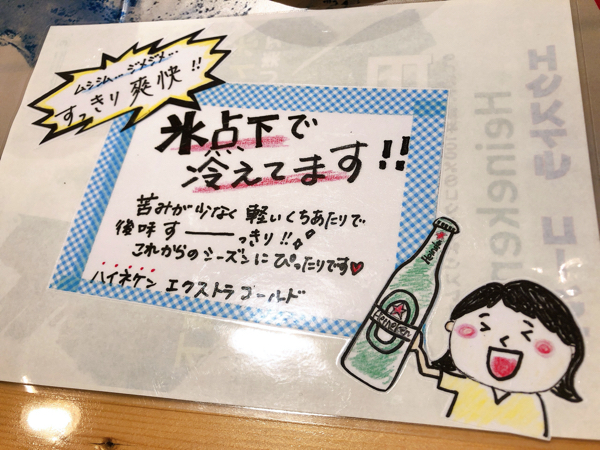 ムシムシ... ジメジメ...
すっきり爽快!!
氷点下で
冷えてます!!
苦みが少なく 軽いくちあたりで
後味す――っきり!!
これからのシーズンに ぴったりです♥
ハイネケン エクストラゴールド
Heineken
Heineken
エクストラ ゴールド